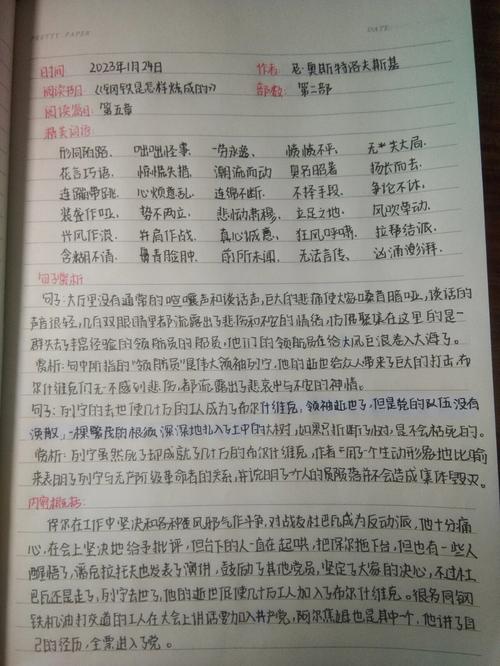 PRETTY PAPER DATE:
时间 2023年1月24日 作者 尼·奥斯特洛夫斯基
阅读书目《钢铁是怎样炼成的》 部数: 第二部
阅读篇目: 第五章
精美词语:
形同陌路. 咄咄怪事. 一劳永逸. 愤愤不平. 无失大局.
花言巧语. 惊慌失措. 潮流而动 臭名昭著. 扬长而去.
连蹦带跳. 心烦意乱. 连绵不断. 不择手段. 争论不休.
装聋作哑. 势不两立. 悲恸肃穆. 立足之地. 风吹草动.
兴风作浪. 并肩作战. 真心诚意. 狂风呼啸. 拉帮结派.
含糊不清. 鼻青脸肿. 前所未闻. 无法言传. 汹涌澎湃.
句子赏析
句子: 大厅里没有通常的喧嚷声和谈话声, 巨大的悲痛使大家嗓音暗哑, 谈话的
声音很轻, 几百双眼睛里都流露出了悲伤和不安的情绪, 仿佛聚集在这里的是一
群失去了丰富经验的领航员的船员, 他们的领航员在给大风巨浪卷入大海了。
赏析: 句中所指的“领航员”是伟大领袖列宁, 他的逝世给众人带来了巨大的打击, 布
尔什维克们无不感到悲伤, 都流露出了悲哀中与不安的神情。
句子: 列宁的去世使几十万的工人成为了布尔什维克, 领袖逝世了, 但是党的队伍没有
涣散, 一棵 的根须深深地扎入了土中的大树, 如果只折断了树, 是不会朽死的。
赏析: 列宁虽然死了却成就了几十万的布尔什维克, 作者用了一个生动形象地比喻
来表明了列宁与无产阶级革命者的关系, 并说明了个人的陨落并不会造成集体毁灭。
内容概括:
保尔在工作中坚决和各种歪风邪气作斗争, 对战友杜巴瓦成为反动派, 他十分痛
心, 在会上坚决地给予批评, 但台下的人一直在起哄, 把保尔拖下台, 但也有一些人
醒悟了, 潘克拉托夫也发表了演讲, 鼓励了其他党员, 坚定了大家的决心, 不过杜
巴瓦还是走了, 列宁去世了, 他的逝世促使几十万工人加入了布尔什维克。很多同钢
铁机油打交道的工人在大会上讲话要加入共产党, 阿尔焦姆也是其中一个, 他讲了自
己的经历, 全票进入了党。